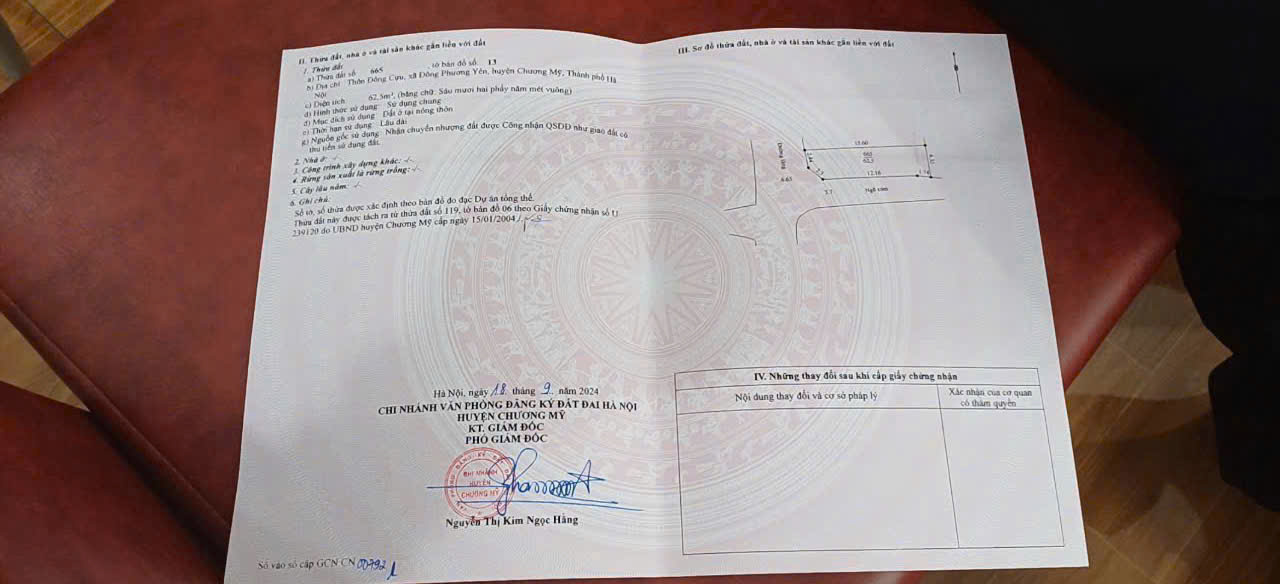 II. Thửa đất, nhà ở và tài sản khác gắn liền với đất
1. Thửa đất
a) Thửa đất số: 665 , tờ bản đồ số: 13
b) Địa chỉ: Thôn Đông Cựu, xã Đông Phương Yên, huyện Chương Mỹ, Thành phố Hà
Nội
c) Diện tích: 62.5m², (bằng chữ: Sáu mươi hai phẩy năm mét vuông)
d) Hình thức sử dụng: Sử dụng chung
đ) Mục đích sử dụng: Đất ở tại nông thôn
e) Thời hạn sử dụng: Lâu dài
g) Nguồn gốc sử dụng: Nhận chuyển nhượng đất được Công nhận QSDĐ như giao đất có
thu tiền sử dụng đất.
2. Nhà ở: -/-
3. Công trình xây dựng khác: -/-
4. Rừng sản xuất là rừng trồng: -/-
5. Cây lâu năm: -/-
6. Ghi chú:
Số tờ, số thửa được xác định theo bản đồ đo đạc Dự án tổng thể.
Thửa đất này được tách ra từ thửa đất số 119, tờ bản đồ 06 theo Giấy chứng nhận số U
239120 do UBND huyện Chương Mỹ cấp ngày 15/01/2004./.
Hà Nội, ngày 18 tháng 9 năm 2024
CHI NHÁNH VĂN PHÒNG ĐĂNG KÝ ĐẤT ĐAI HÀ NỘI
HUYỆN CHƯƠNG MỸ
KT. GIÁM ĐỐC
PHÓ GIÁM ĐỐC
CHI NHÁNH
HUYỆN
CHƯƠNG MỸ
Nguyễn Thị Kim Ngọc Hằng
Số vào sổ cấp GCN:CN 00792
III. Sơ đồ thửa đất, nhà ở và tài sản khác gắn liền với đất
15.60
665
62.5
12.16
6.65
5.7
Ngõ xóm
IV. Những thay đổi sau khi cấp giấy chứng nhận
Nội dung thay đổi và cơ sở pháp lý
Xác nhận của cơ quan
có thẩm quyền